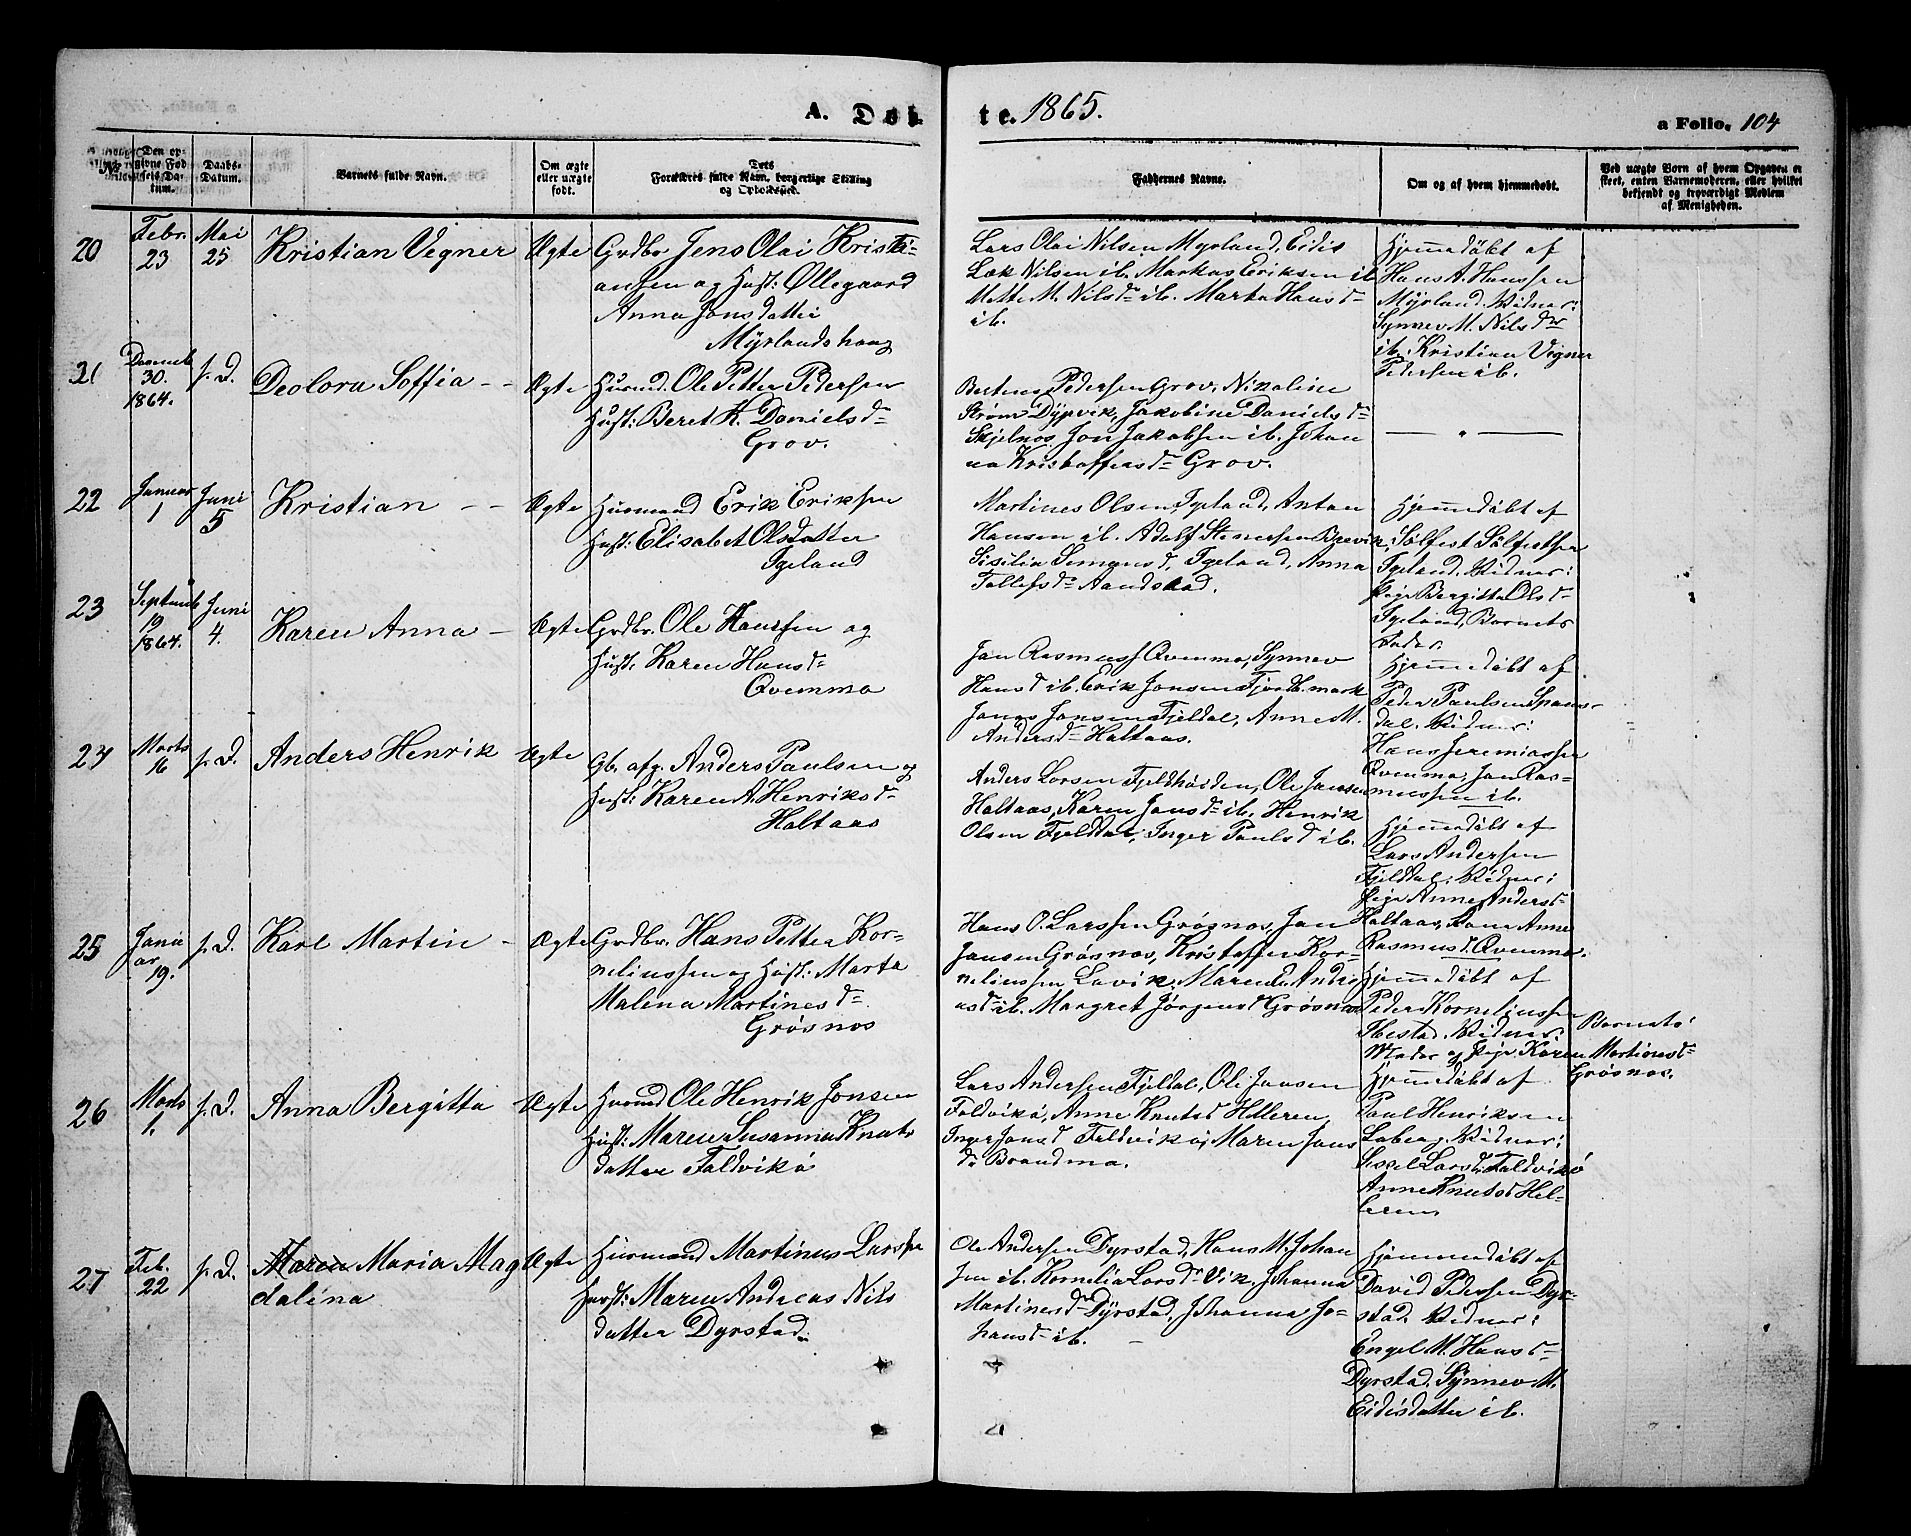 A. Døb
te. 1865.
a Folio. 104
№
Den op-
givne Fød-
sels Da-
tum.
Daabs-
Datum.
Barnets fulde Navn.
Om ægte
eller uægte
født.
Dets
Forældres fulde Navn, borgerlige Stilling
og Opholdssted.
Faddernes Navne.
Om og af hvem hjemmedøbt.
Ved uægte Børn af hvem Opgaven er
skeet, enten Barnemoderen, eller hvilket
bekjendt og troværdigt Medlem
af Menigheden.
20
Febr.
23
Mai
25
Kristian Vegner
Ægte
Grdbr. Jens Olai Kristi-
ansen og Hust: Øllegaard
Anna Jonsdatter
Myrlandshaug
Lars Olai Nilsen Myrland, Eidis
Læk Nilsen ib. Markus Eriksen ib
Mette M. Nilsdr ib. Marta Hansd
ib.
Hjemmedøbt af
Hans A. Hanssen
Myrland. Vidner:
Synnev M. Nilsdr
ib. Kristian Vegner
Pedersen ib.
21
Decemb
30.
1864.
s. D.
Deolora Soffia - -
Ægte
Husmd. Ole Petter Pedersen
Hust: Beret K. Danielsd
Grov.
Pedersen Grov, Nikoline
Strøm Dypvik, Jakobine Danielsd
Skjelnes, Jon Jakobsen ib. Johan
na Kristoffersd Grov.
— " —
22
Januar
1
Juni
5
Kristian - -
Ægte
Husmand Erik Eriksen
Hust: Elisabet Olsdatter
Igeland
Martines Olsen, Igeland, Anton
Hansen ib. Adolf Stenersen Brevik,
Sisilia Simonsd, Igeland, Anna
Tollefsd Aandstad.
Hjemmedøbt af
Sølfest Sølfestsen
Igeland. Vidner:
Pige Bergitta Olsd
Igeland, Barnets
Fader
23
Septemb
19
1864.
Juni
4.
Karen Anna -
Ægte
Grdbr. Ole Hanssen og
Hust. Karen Hansd
Qvemmo
Jan Rasmuss Qvemmo, Synnev
Hansd ib. Erik Jonsen Fjordbmark
Jonas Jonsen Fjeldal, Anne M.
Andersd Haltaas.
Hjemmedøbt af
Peder Paulsen Spans-
dal. Vidner:
Hans Jeremiassen
Qvemmo, Jan Ras-
mussen ib.
24
Marts
16
s. D.
Anders Henrik
Ægte
Gb. afg. Anders Paulsen og
Hust: Karen A. Henriksd
Haltaas
Anders Larsen Fjeldhøiden, Ole Jansen
Haltaas, Karen Jansd ib. Henrik
Olsen Fjeldal, Inger Paulsd ib.
Hjemmedøbt af
Lars Andersen
Fjeldal. Vidner:
Pige Anne Andersd
Haltaas, Kone Anne
Rasmusd. Qvemmo.
25
Janu
ar
19.
s. D.
Karl Martin -
Ægte
Grdbr. Hans Petter Kor-
neliussen og Hust: Marta
Malena Martinesd
Grøsnes
Hans O. Larssen Grøsnes, Jan
Jansen Grøsnes, Kristoffer Kor-
neliussen Lavik, Maren E. Andre
asd ib. Margret Jørgensd Grøsnes
Hjemmedøbt af
Peder Korneliussen
Ibestad. Vidner:
Moder og Pige Karen Martinesd
Barnets
Grøsnes.
26
Marts
1.
s. D.
Anna Bergitta
Ægte
Husmd Ole Henrik Jonsen
Hust: Maren Susanna Knuts
datter Foldvikø
Lars Andersen Fjeldal, Ole Jansen
Foldvikø, Anne Knutsd Helleren,
Inger Jonsd Foldvikø, Maren Jans
dr Brandmo.
Hjemmedøbt af
Paul Henriksen
Laberg. Vidner:
Sissel Larsd. Foldvikø
Anne Knutsd Hel-
leren
27
Feb.
22
s. D.
Maren Maria Mag
dalina
Ægte
Husmand Martinus Larssen
Hust: Maren Andreas Nils
datter Dyrstad.
Ole Andersen Dyrstad, Hans M. Johan
sen ib. Kornelia Larsdr Vik, Johanna
Martinesdr Dyrstad, Johanna Jo-
hansd ib.
Hjemmedøbt af
David Pedersen Dyr-
stad. Vidner:
Engel M. Hansd
Dyrstad, Synnev M.
Eidisdatter ib.